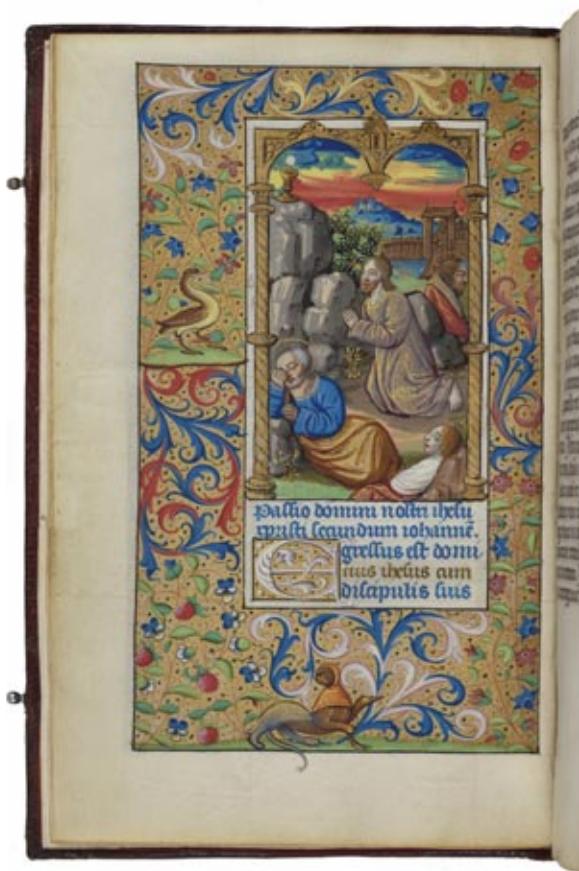 Passio domini nostri ihesu
xpristi secundum iohannē.
Egressus est domi
nus ihesus cum
discipulis suis